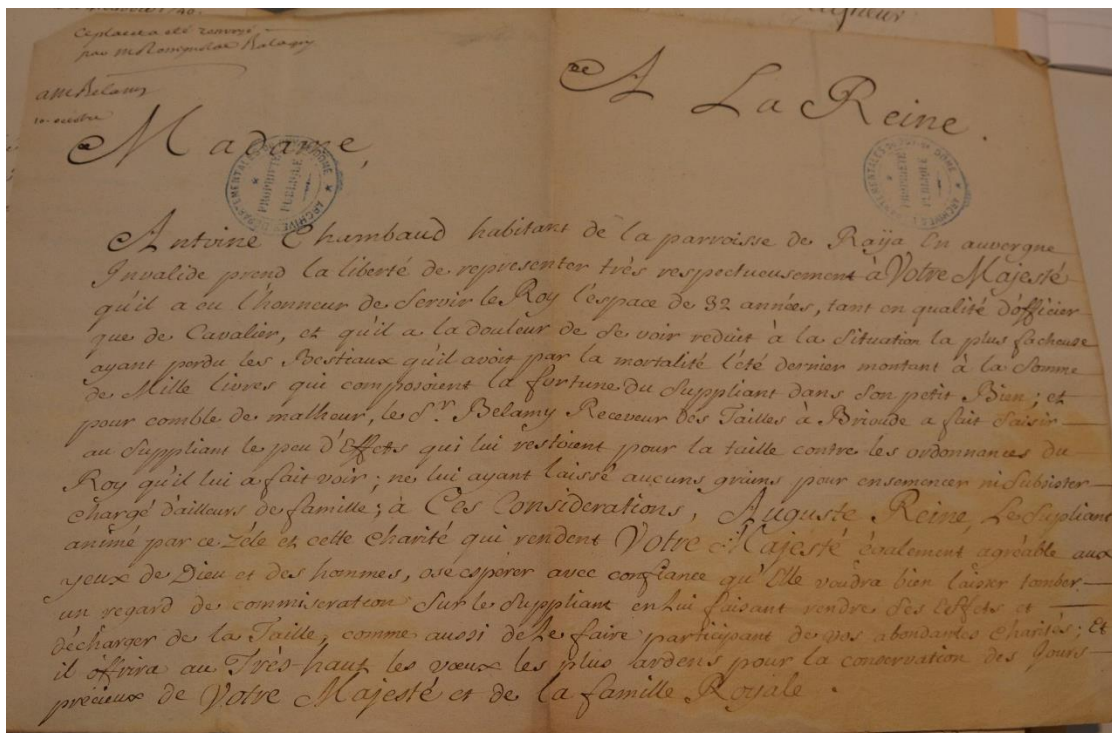 Ce placet a été renvoyé
par M Rossignol a Belamy
a M Belamy
A La Reine.
Madame,
ARCHIVES DEPARTEMENTALES DU PUY DE DOME
PROPRIETE
PUBLIQUE
ARCHIVES DEPARTEMENTALES DU PUY DE DOME
PROPRIETE
PUBLIQUE
Antoine Chambaud habitant de la parroisse de Raÿa En auvergne
Invalide prend la liberté de representer très respectueusement à Votre Majesté
qu'il a eu l'honneur de Servir le Roy l'espace de 32 années, tant en qualité d'officier
que de Cavalier, et qu'il a la douleur de Se voir reduit à la Situation la plus facheuse
ayant perdu les Bestiaux qu'il avoit par la mortalité l'été dernier montant à la Somme
de Mille livres qui composoient la fortune du Suppliant dans Son petit Bien; et
pour comble de malheur, le Sr. Belamy Receveur des Tailles à Brioude a fait Saisir
au Suppliant le peu d'Effets qui lui restoient pour la taille contre les ordonnances du
Roy qu'il lui a fait voir; ne lui ayant laissé aucuns grains pour ensemencer ni Subsister
chargé d'ailleurs de famille; à Ces Considerations, Auguste Reine, Le Supliant
animé par ce Zéle et cette Charité qui rendent Votre Majesté également agréable aux
yeux de Dieu et des hommes, ose esperer avec confiance qu'Elle voudra bien laisser tomber
un regard de commiseration Sur le Suppliant en Lui faisant rendre Ses Effets et
décharger de la Taille, comme aussi de Le faire participant de vos abondantes Charités; Et
il offrira au Très-haut les vœux les plus ardens pour la conservation des Jours
précieux de Votre Majesté et de la famille Royale.